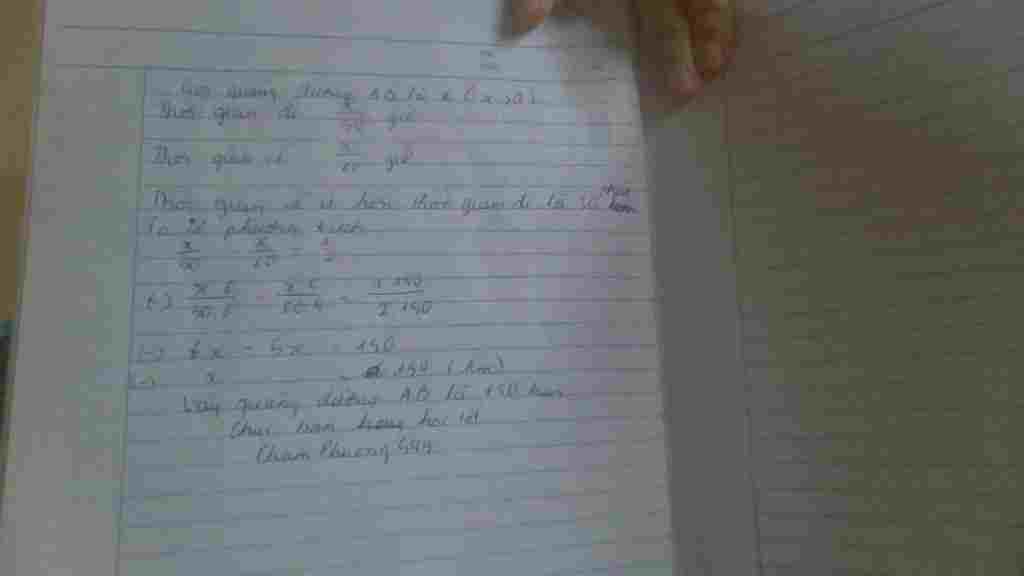 Gọi quãng đường AB là x (x>0)
Thời gian đi x/50 giờ
Thời gian về x/60 giờ
Thời gian về ít hơn thời gian đi là 30 phút
Ta có phương trình
x/50 - x/60 = 1/2
<=> x.6/50.6 - x.5/60.5 = 1.150/2.150
<=> 6x - 5x = 150
<=> x = 150 (km)
Vậy quãng đường AB là 150 km
Chúc bạn học tốt
Pham Phuong